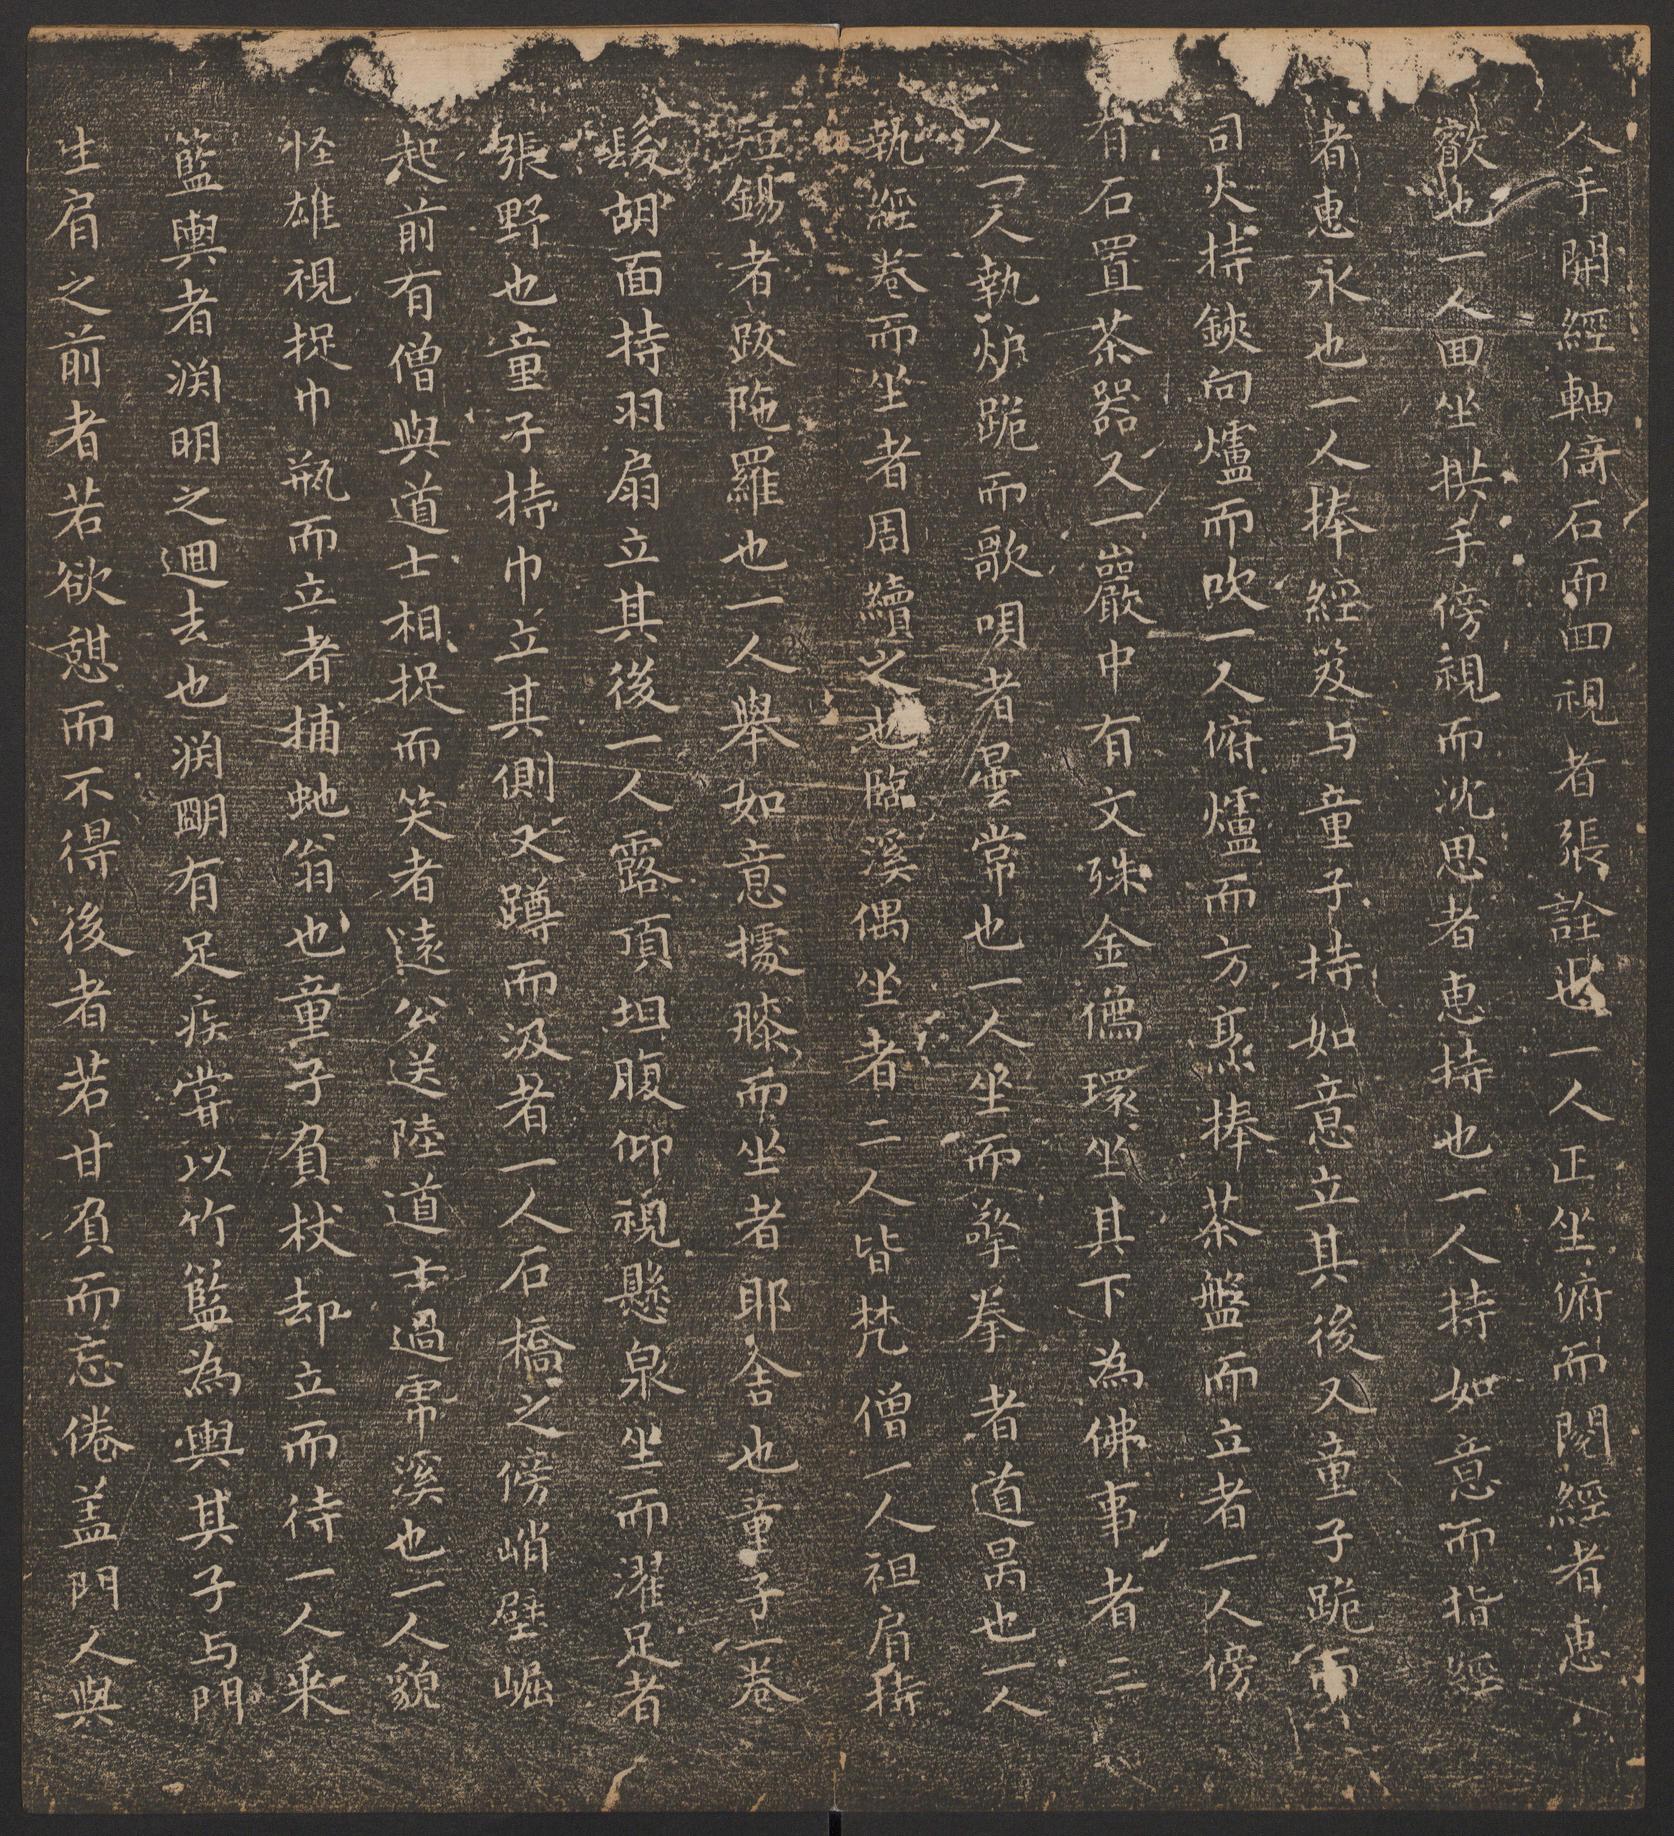 人手開經軸倚石而回視者張詮也一人正坐俯而閱經者惠
叡也一人面坐拱手傍視而沈思者惠持也一人持如意而指經
者惠永也一人捧經笈与童子持如意立其後又童子跪而
司火持鋏向爐而吹一人俯爐而方烹捧茶盤而立者一人傍
有石置茶器又一巖中有文殊金僞環坐其下為佛事者三
人一人執炉跪而歌唄者曇常也一人坐而擎拳者道昺也一人
執經卷而坐者周續之也臨溪偶坐者二人皆梵僧一人袒肩持
短錫者跋陁羅也一人舉如意據膝而坐者耶舍也童子一卷
髮胡面持羽扇立其後一人露頂坦腹仰視懸泉坐而濯足者
張野也童子持巾立其側又蹲而汲者一人石橋之傍峭壁崛
起前有僧與道士相捉而笑者遠公送陸道士過帍溪也一人貌
怪雄視捉巾瓶而立者捕虵翁也童子負杖却立而待一人乘
籃輿者渕明之迴去也渕朙有足疾嘗以竹籃為輿其子与門
生肩之前者若欲憇而不得後者若甘負而忘倦盖門人與